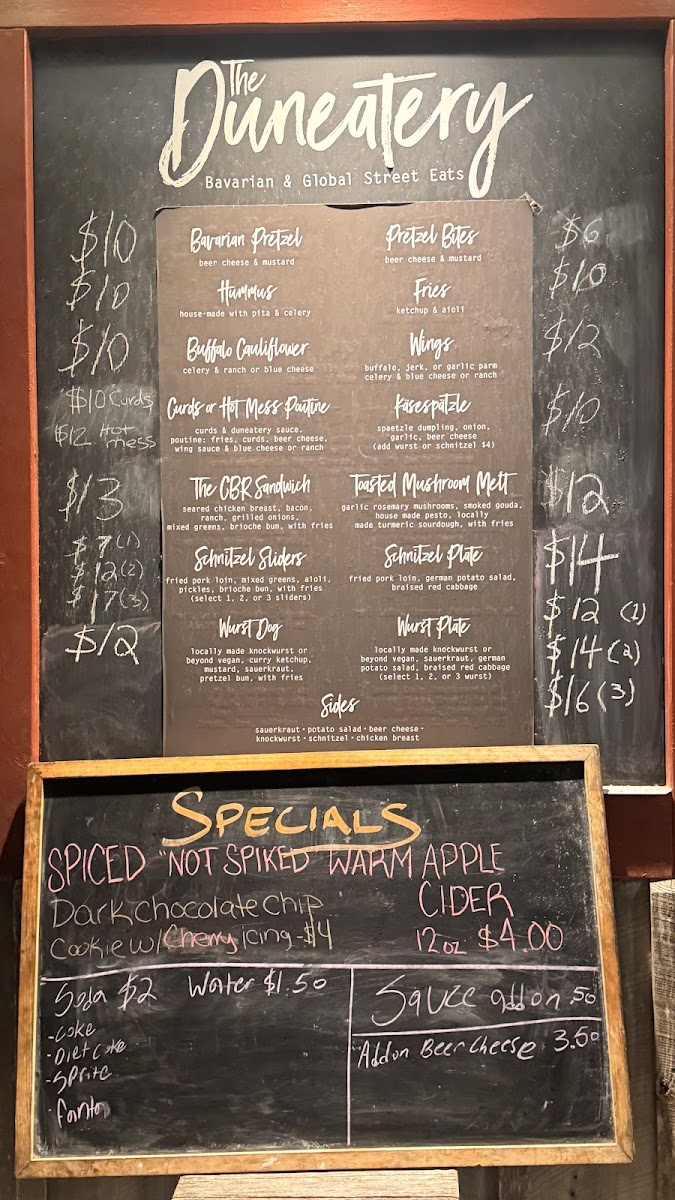 The
Duneatery
Bavarian & Global Street Eats
$10
Bavarian Pretzel
beer cheese & mustard
Pretzel Bites
beer cheese & mustard
$6
$10
Hummus
house-made with pita & celery
Fries
ketchup & aioli
$10
$10
Buffalo Cauliflower
celery & ranch or blue cheese
Wings
buffalo, jerk, or garlic parm
celery & blue cheese or ranch
$12
$10 Curds
$12 Hot mess
Curds or Hot Mess Poutine
curds & duneatery sauce,
poutine: fries, curds, beer cheese,
wing sauce & blue cheese or ranch
Käsespätzle
spaetzle dumpling, onion,
garlic, beer cheese
(add wurst or schnitzel $4)
$10
$13
The CBR Sandwich
seared chicken breast, bacon,
ranch, grilled onions,
mixed greens, brioche bun, with fries
Toasted Mushroom Melt
garlic rosemary mushrooms, smoked gouda,
house made pesto, locally
made turmeric sourdough, with fries
$12
$7(1)
$12(2)
$17(3)
Schnitzel Sliders
fried pork loin, mixed greens, aioli,
pickles, brioche bun, with fries
(select 1, 2, or 3 sliders)
Schnitzel Plate
fried pork loin, german potato salad,
braised red cabbage
$14
$12
Wurst Dog
locally made knockwurst or
beyond vegan, curry ketchup,
mustard, sauerkraut,
pretzel bun, with fries
Wurst Plate
locally made knockwurst or
beyond vegan, sauerkraut, german
potato salad, braised red cabbage
(select 1, 2, or 3 wurst)
$12 (1)
$14(2)
$16(3)
Sides
sauerkraut · potato salad · beer cheese ·
knockwurst · schnitzel · chicken breast
SPECIALS
SPICED "NOT SPIKED" WARM APPLE
CIDER
12oz $4.00
Dark chocolate chip
Cookie w/ Cherry icing - $4
Soda $2 Water $1.50
- Coke
- Diet Coke
- Sprite
- Fanta
Sauce add on .50
"Add on Beer Cheese 3.50